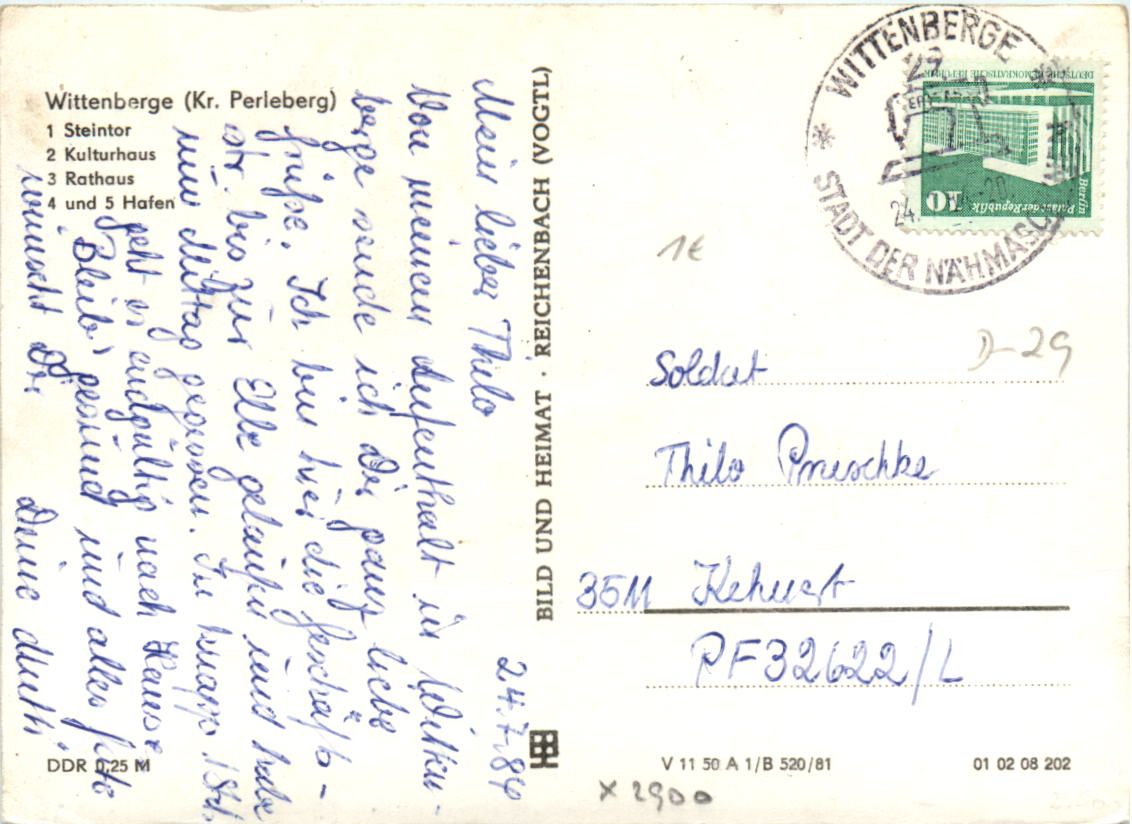 Wittenberge (Kr. Perleberg)
1 Steintor
2 Kulturhaus
3 Rathaus
4 und 5 Hafen
24.7.84
Mein lieber Thilo
Von meinem Aufenthalt in Witten-
berge sende ich Dir ganz liebe
Grüße. Ich bin hier die Geschäfts-
str. bis zur Elbe gelaufen und habe
nun Mittag gegessen. In knapp 1 Std.
geht es endgültig nach Hause.
Bleib' gesund und alles Gute
wünscht Dir
Deine Mutti
DDR 0,25 M
BILD UND HEIMAT · REICHENBACH (VOGTL)
WITTENBERGE
STADT DER NÄHMASCH
24.
DEUTSCHE DEMOKRATISCHE REPUBLIK
10
Palast der Republik
Berlin
1€
D-29
Soldat
Thilo
3511 Kehnert
PF32622/L
V 11 50 A 1/B 520/81
01 02 08 202
X 2900